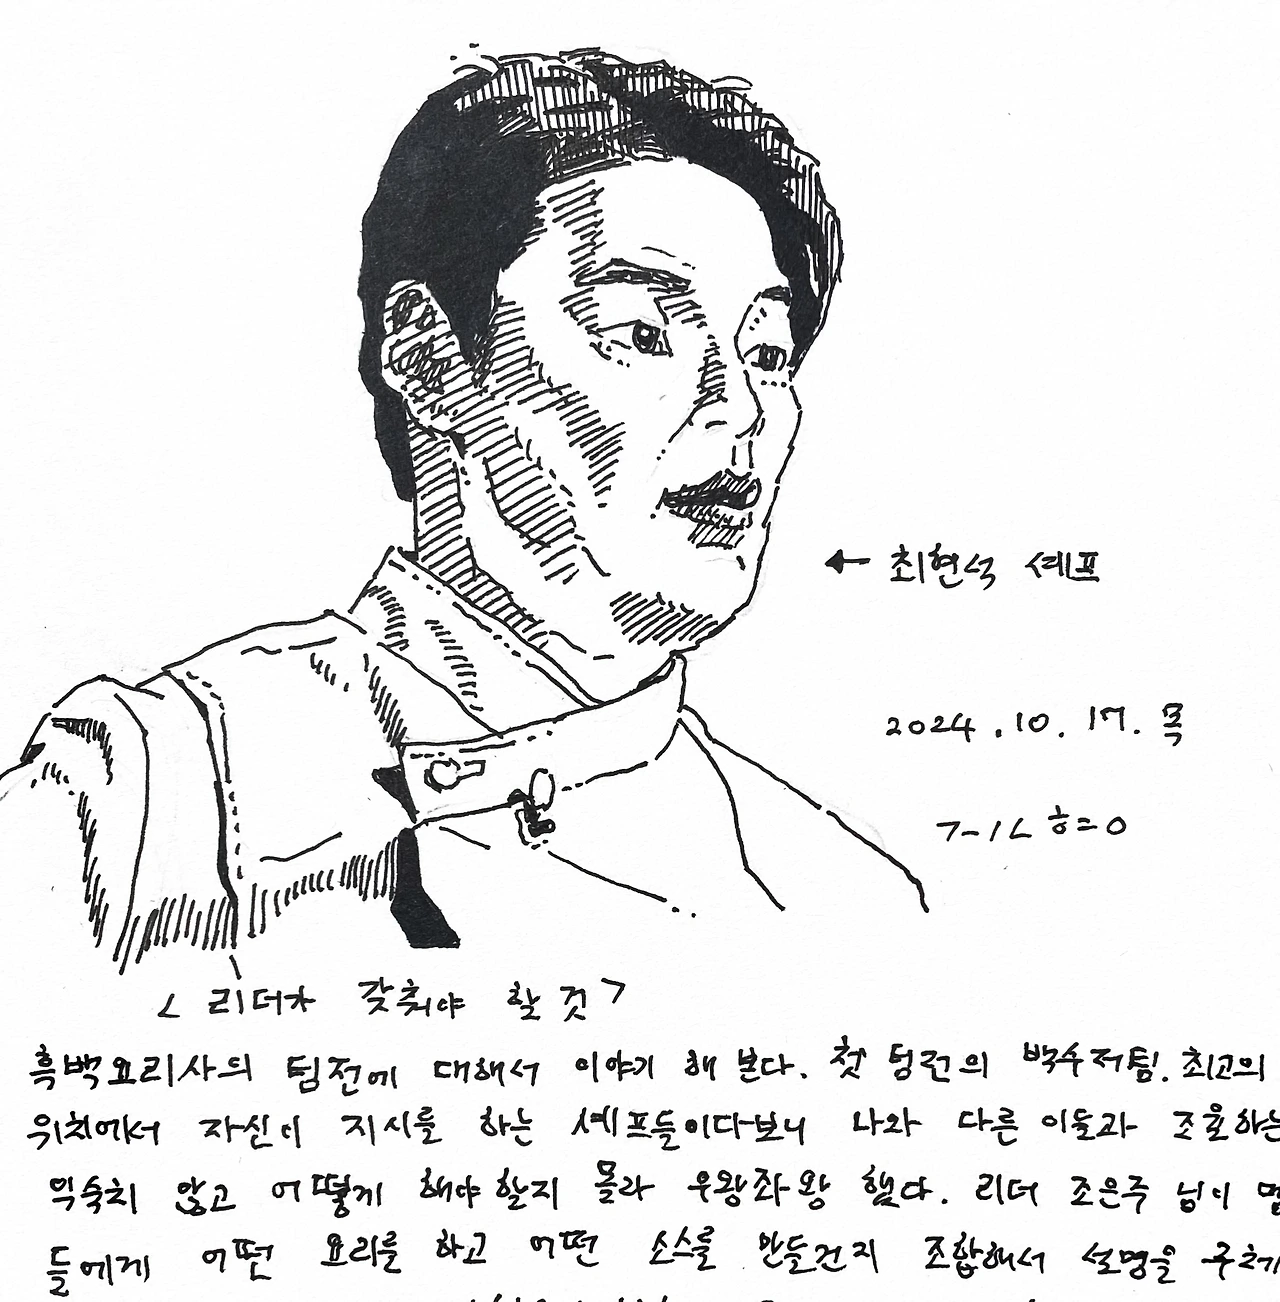 ← 최현석 셰프
2024.10.17.목
< 리더가 갖춰야 할 것 >
흑백요리사의 팀전에 대해서 이야기 해 본다. 첫 팀전의 백수저팀. 최고의
위치에서 자신이 지시를 하는 셰프들이다보니 나와 다른 이들과 조율하는
익숙치 않고 어떻게 해야 할지 몰라 우왕좌왕 했다. 리더 조은주 님이
들에게 어떤 요리를 하고 어떤 소스를 만들건지 조합해서 설명을